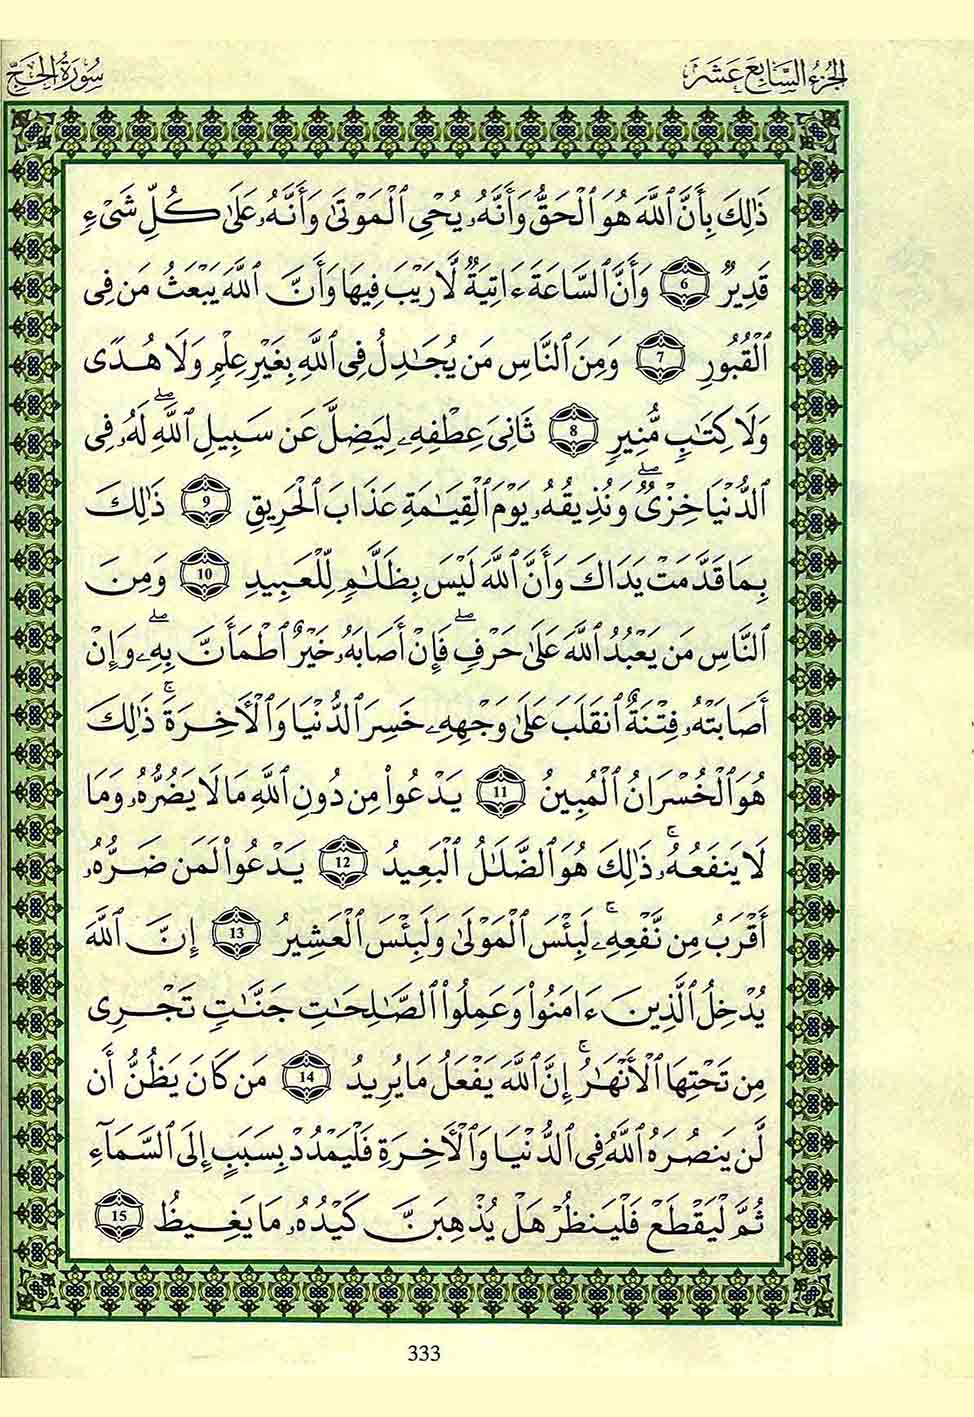 الجزء السابع عشر
سورة الحج
ذَٰلِكَ بِأَنَّ ٱللَّهَ هُوَ ٱلْحَقُّ وَأَنَّهُۥ يُحْىِ ٱلْمَوْتَىٰ وَأَنَّهُۥ عَلَىٰ كُلِّ شَىْءٍ
قَدِيرٌ 6 وَأَنَّ ٱلسَّاعَةَ ءَاتِيَةٌ لَّا رَيْبَ فِيهَا وَأَنَّ ٱللَّهَ يَبْعَثُ مَن فِى
ٱلْقُبُورِ 7 وَمِنَ ٱلنَّاسِ مَن يُجَـٰدِلُ فِى ٱللَّهِ بِغَيْرِ عِلْمٍ وَلَا هُدًى
وَلَا كِتَـٰبٍ مُّنِيرٍ 8 ثَانِىَ عِطْفِهِۦ لِيُضِلَّ عَن سَبِيلِ ٱللَّهِ ۖ لَهُۥ فِى
ٱلدُّنْيَا خِزْىٌ ۖ وَنُذِيقُهُۥ يَوْمَ ٱلْقِيَـٰمَةِ عَذَابَ ٱلْحَرِيقِ 9 ذَٰلِكَ
بِمَا قَدَّمَتْ يَدَاكَ وَأَنَّ ٱللَّهَ لَيْسَ بِظَلَّـٰمٍ لِّلْعَبِيدِ 10 وَمِنَ
ٱلنَّاسِ مَن يَعْبُدُ ٱللَّهَ عَلَىٰ حَرْفٍ ۖ فَإِنْ أَصَابَهُۥ خَيْرٌ ٱطْمَأَنَّ بِهِۦ ۖ وَإِنْ
أَصَابَتْهُ فِتْنَةٌ ٱنقَلَبَ عَلَىٰ وَجْهِهِۦ خَسِرَ ٱلدُّنْيَا وَٱلْـَٔاخِرَةَ ۚ ذَٰلِكَ
هُوَ ٱلْخُسْرَانُ ٱلْمُبِينُ 11 يَدْعُوا۟ مِن دُونِ ٱللَّهِ مَا لَا يَضُرُّهُۥ وَمَا
لَا يَنفَعُهُۥ ۚ ذَٰلِكَ هُوَ ٱلضَّلَـٰلُ ٱلْبَعِيدُ 12 يَدْعُوا۟ لَمَن ضَرُّهُۥٓ
أَقْرَبُ مِن نَّفْعِهِۦ ۚ لَبِئْسَ ٱلْمَوْلَىٰ وَلَبِئْسَ ٱلْعَشِيرُ 13 إِنَّ ٱللَّهَ
يُدْخِلُ ٱلَّذِينَ ءَامَنُوا۟ وَعَمِلُوا۟ ٱلصَّـٰلِحَـٰتِ جَنَّـٰتٍ تَجْرِى
مِن تَحْتِهَا ٱلْأَنْهَـٰرُ ۚ إِنَّ ٱللَّهَ يَفْعَلُ مَا يُرِيدُ 14 مَن كَانَ يَظُنُّ أَن
لَّن يَنصُرَهُ ٱللَّهُ فِى ٱلدُّنْيَا وَٱلْـَٔاخِرَةِ فَلْيَمْدُدْ بِسَبَبٍ إِلَى ٱلسَّمَآءِ
ثُمَّ لْيَقْطَعْ فَلْيَنظُرْ هَلْ يُذْهِبَنَّ كَيْدُهُۥ مَا يَغِيظُ 15
333